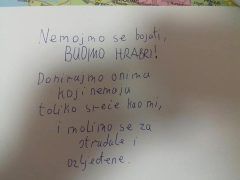 Nemojmo se bojati,
BUDMO HRABRI!
Donirajmo onima
koji nemaju
toliko sreće kao mi,
i molimo se za
stradale i
ozljeđene.